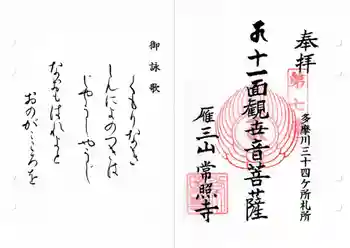 奉拝
第七
多摩川三十四ケ所札所
十一面觀世音菩薩
雁三山 常照寺
御詠歌
くもりなき
しんによのつきは
じやうしやうじ
なほもはれよと
おのがこゝろを